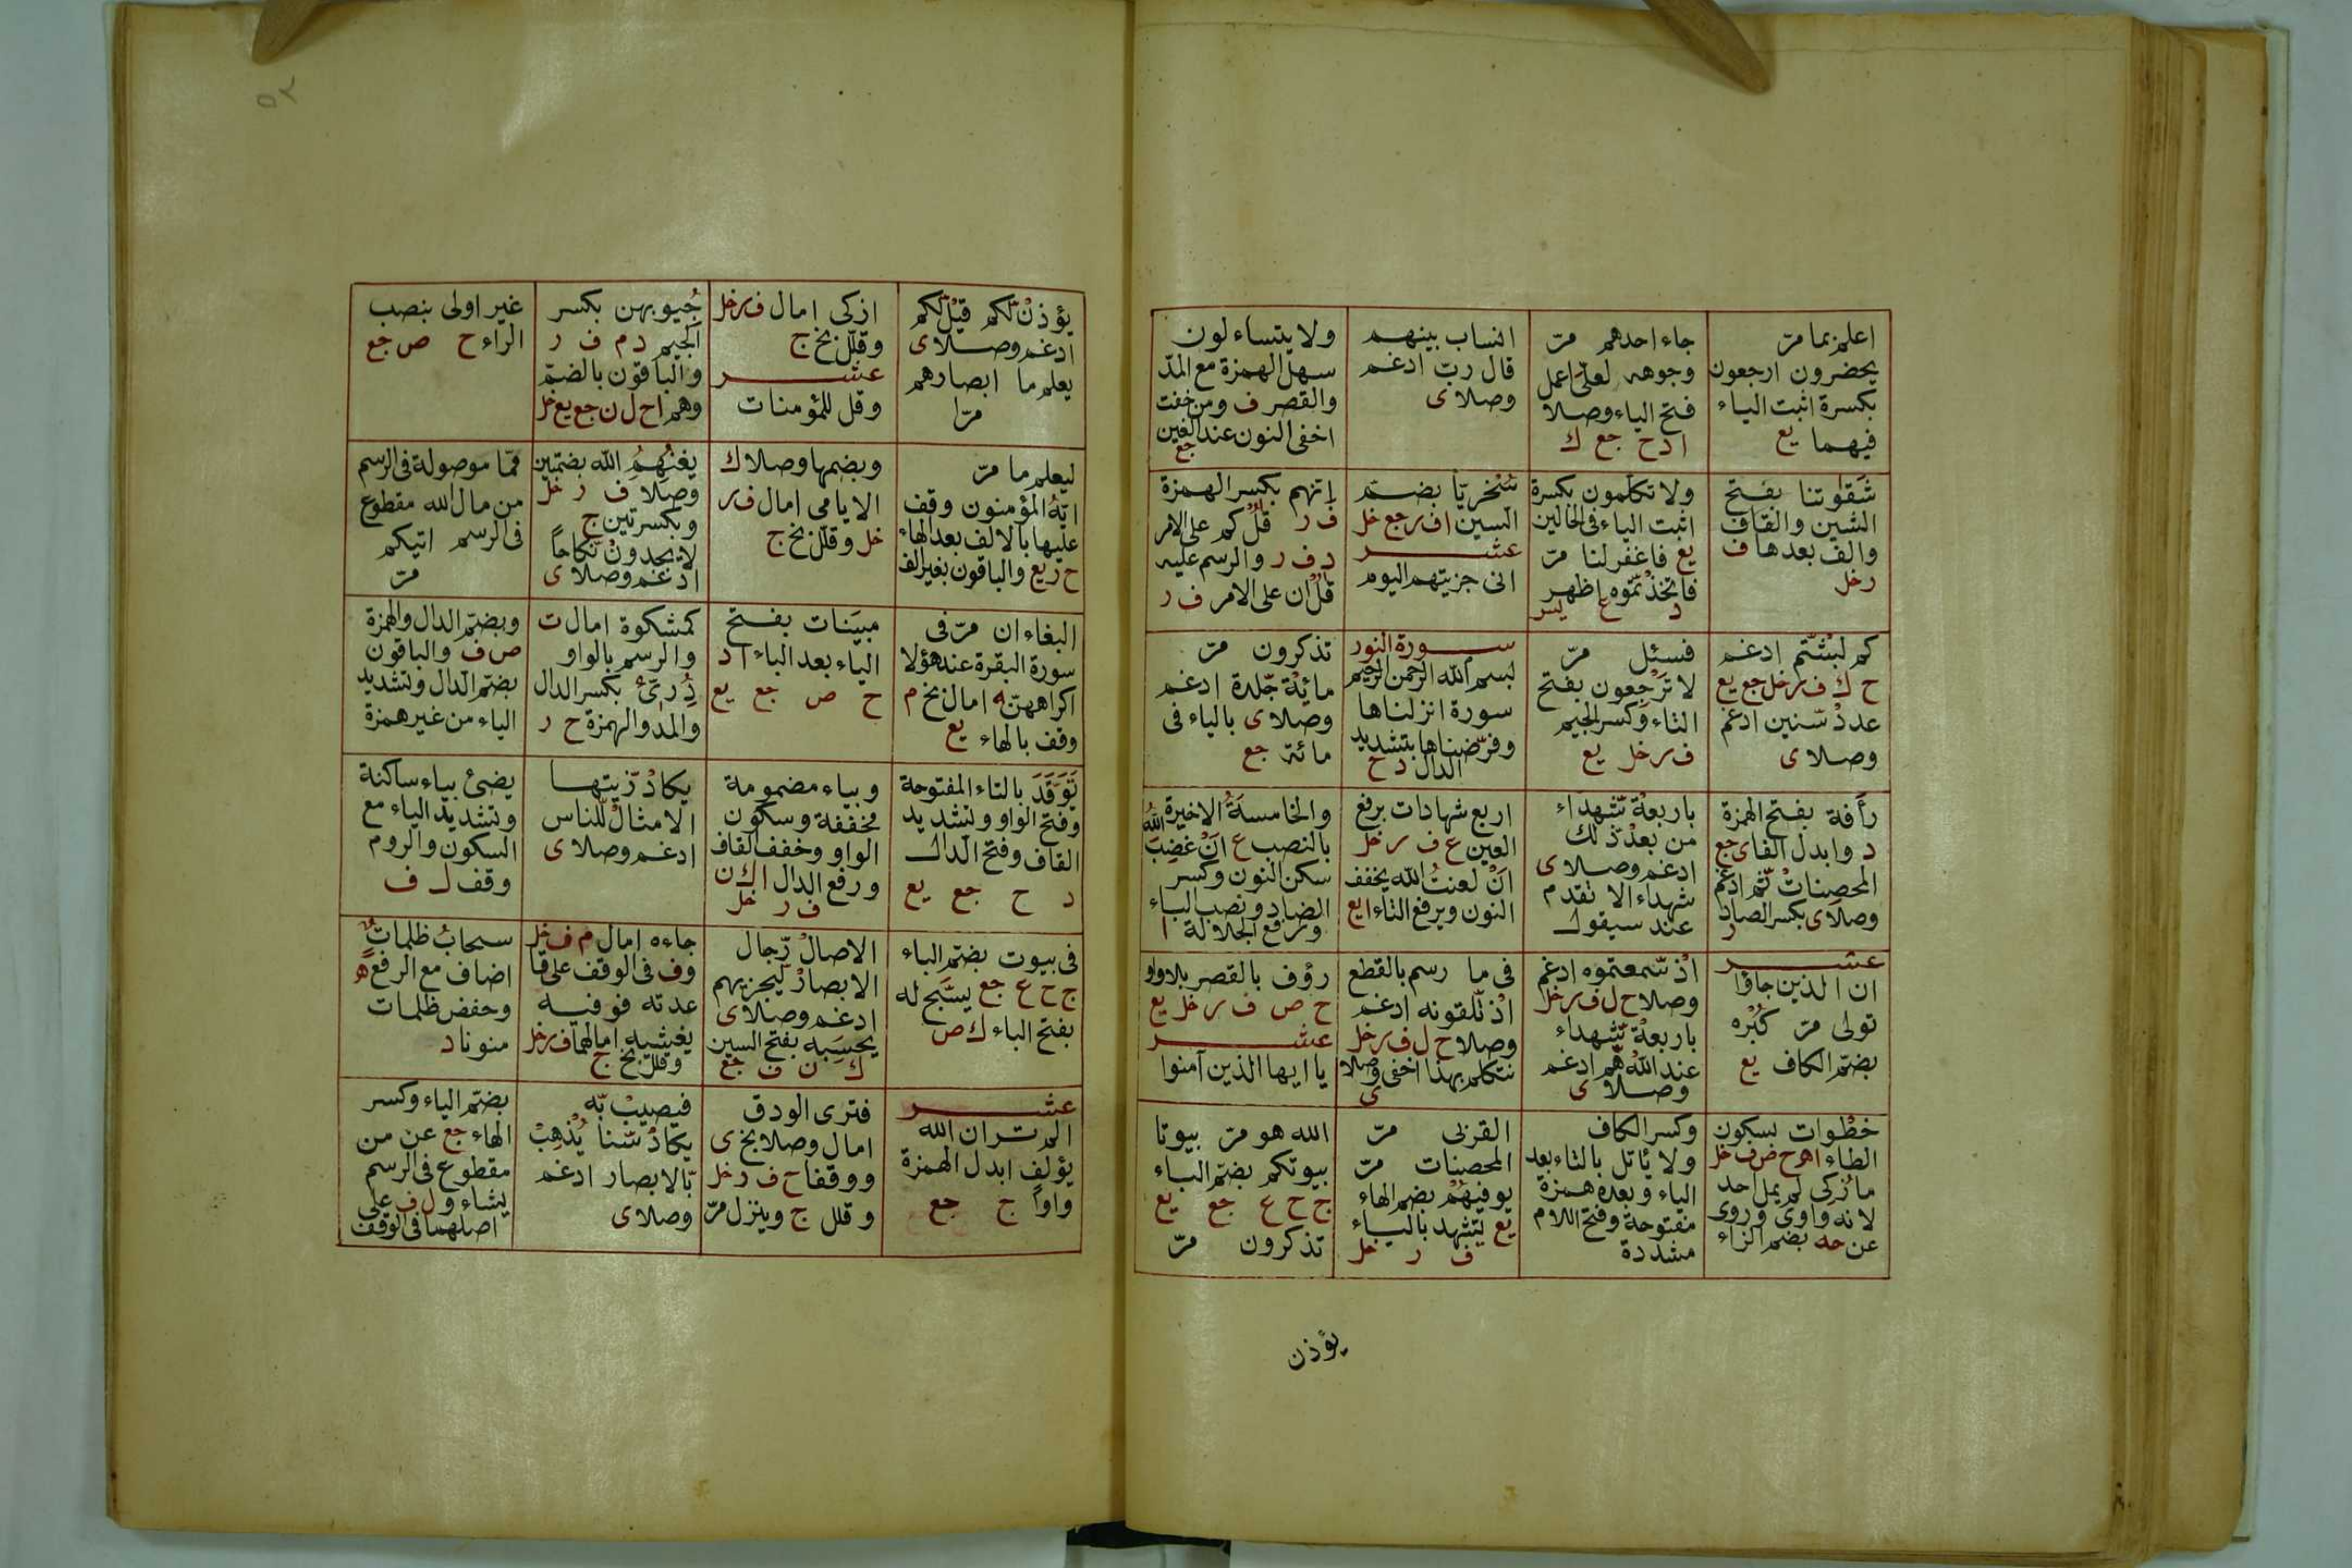 اعلم بما مرّ
يحضرون ارجعون
بكسرة اثبت الياء
فيهما يع
جاء احدهم مرّ
وجوهه لعلّى اعمل
فتح الياء وصلا
ا د ح جع ك
انساب بينهم
قال ربّ ادغم
وصلا ى
ولا يتساءلون
سهل الهمزة مع المدّ
والقصر ف ومن خفت
اخفى النون عند الغين
جع
شَقَاوتنا بفتح
الشين والقاف
والف بعدها ف
ر خل
ولا تكلمون بكسرة
اثبت الياء فى الحالين
يع فاغفر لنا مرّ
فاتخذتموه اظهر
د ع يس
سُخريّا بضمّ
السين ا ف ر جع خل
عشر
انى جزيتهم اليوم
إنهم بكسر الهمزة
ف ر قُلْ كم على الامر
د ف ر والرسم عليه
قُلْ ان على الامر ف ر
كم لبثتم ادغم
ح ك ف ر خل جع يع
عدد سّنين ادغم
وصلا ى
فسئل مرّ
لا تَرْجِعون بفتح
التاء وكسر الجيم
ف ر خل يع
سورة النور
بسم الله الرحمن الرحيم
سورة انزلناها
وفرّضناها بتشديد
الدال د ح
تذكرون مرّ
مائة جّلدة ادغم
وصلا ى بالياء فى
مائة جع
رأَفة بفتح الهمزة
د وابدل الفا ى جع
المحصنات ثّم ادغم
وصلا ى بكسر الصاد
ر
باربعة شّهداء
من بعد ذّلك
ادغم وصلا ى
شهداء الا تقدم
عند سيقول
اربع شهادات برفع
العين ع ف ر خل
انْ لعنتُ الله يخفف
النون ويرفع التاء ا يع
والخامسةُ الاخيرة
بالنصب ع انْ غضِبَ اللهُ
سكن النون وكسر
الضاد ونصب الباء
ورفع الجلالة ا
عشر
ان الذين جاؤا
تولى مرّ كُبْره
بضمّ الكاف يع
اذ سّمعتموه ادغم
وصلا ح ل ف ر خل
باربعة شّهداء
عند الله هّم ادغم
وصلا ى
فى ما رسم بالقطع
اذ تّلقونه ادغم
وصلا ح ل ف ر خل
نتكلم بهذا اخفى وصلا
ى
رؤف بالقصر بلا واو
ح ص ف ر خل يع
عشر
يا ايها الذين آمنوا
خطْوات بسكون
الطاء ا ه ح ص ف خل
ما زكى لم يمل احد
لانه واوى وروى
عن حه بضم الزاء
وكسر الكاف
ولا يَأتل بالتاء بعد
الياء وبعده همزة
مفتوحة وفتح اللام
مشددة
القربى مرّ
المحصنات مرّ
يوفيهُم بضم الهاء
يع يشهد بالياء
ف ر خل
الله هو مرّ بيوتا
بيوتكم بضمّ الباء
ج ح ع جع يع
تذكرون مرّ
يؤذن
يؤذن لّكم قيل لّكم
ادغم وصلا ى
يعلم ما ابصارهم
مرّا
ازكى امال ف ر خل
وقلّل بخ ج
عشر
وقل للمؤمنات
جُيوبهن بكسر
الجيم د م ف ر
والباقون بالضمّ
وهم ا ح ل ن جع يع خل
غير اولى بنصب
الراء ح ص جع
ليعلم ما مرّ
ايّهُ المؤمنون وقف
عليها بالالف بعد الهاء
ح ر يع والباقون بغير الف
وبضمها وصلا ك
الايامى امال ف ر
خل وقلّل بخ ج
يغنهمُ الله بضمّتين
وصلا ف ر خل
وبكسرتين ج
لا يجدون نّكاحاً
ادغم وصلا ى
ممّا موصولة فى الرسم
من مال الله مقطوع
فى الرسم اتيكم
مرّ
البغاء ان مرّ فى
سورة البقرة عند هؤلا
اكراههنّ به امال بخ م
وقف بالهاء يع
مبيَنات بفتح
الياء بعد الباء ا د
ح ص جع يع
كمشكوة امال ت
والرسم بالواو
دُرىّءٌ بكسر الدال
والمدّ والهمزة ح ر
وبضمّ الدال والهمزة
ص ف والباقون
بضمّ الدال وتشديد
الياء من غير همزة
تَوَقّدَ بالتاء المفتوحة
وفتح الواو وتشديد
القاف وفتح الدال
د ح جع يع
وبياء مضمومة
مخففة وسكون
الواو وخفف القاف
ورفع الدال ا ك ن
ف ر خل
يكاد زّيتها
الامثال لّلناس
ادغم وصلا ى
يضئ بياء ساكنة
وتشديد الياء مع
السكون والروم
وقف ل ف
فى بيوت بضمّ الباء
ج ح ع جع يسبَّح له
بفتح الباء ك ص
الاصال رّجال
الابصار لّيجزيهم
ادغم وصلا ى
يحسَبه بفتح السين
ك ن ف جع
جاءه امال م ف خل
وف فى الوقف على قا
عدته فوفيه
يغشيه امالهما ف ر خل
وقلّل بخ ج
سحابُ ظلماتٌ
اضاف مع الرفع ه
وخفض ظلمات
منونا د
عشر
الم تر ان الله
يؤلف ابدل الهمزة
واواً ج جع
فترى الودق
امال وصلا بخ ى
ووقفا ح ف ر خل
وقلل ج وينزل مرّ
فيصيب بّه
يكاد سّنا يُذْهِبْ
بّالابصار ادغم
وصلا ى
بضمّ الياء وكسر
الهاء جع عن من
مقطوع فى الرسم
يشاء ول ف على
اصلهما فى الوقف